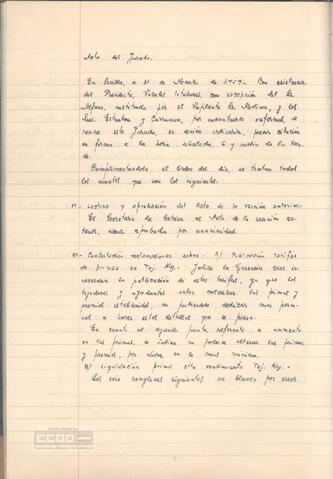 Acta del Jurado.
En Sevilla, a 31 de Marzo de 1.959. Con asistencia
del Presidente, Vocales titulares, con excepción del Sr.
sustituido por el Suplente Sr. Medina, y los
Sres. Estrubra y Carranza, por encontrarse enfermo, se
reune este Jurado, en sesión ordinaria, previa citación
en forma a la hora señalada 6 y media de la tar-
de.
Cumplimentandose el Orden del día, se tratan todos
los asuntos que son los siguientes:
1º.- Lectura y aprobación del Acta de la reunión anterior.-
El Secretario da lectura al Acta de la reunión an-
terior, siendo aprobada por unanimidad.
2º.- Contestación reclamaciones sobre: a) Publicación tarifas
de primas en Tej. Alg.- Indica la Gerencia cree in-
necesaria la publicación de estas tarifas, ya que los
tejedores y ayudantes saben calcular sus primas y
premios establecidos, no pudiendo dedicar más perso-
nal a hacer estos detalles que se piden.
En cuanto al segundo punto, referente a aumento
en las primas, se indica no poderse alterar las primas
y premios, por ahora, en lo más mínimo.
b) Liquidación primas alto rendimiento Tej. Alg.-
Los seis renglones siguientes en blanco por error.
CCOO